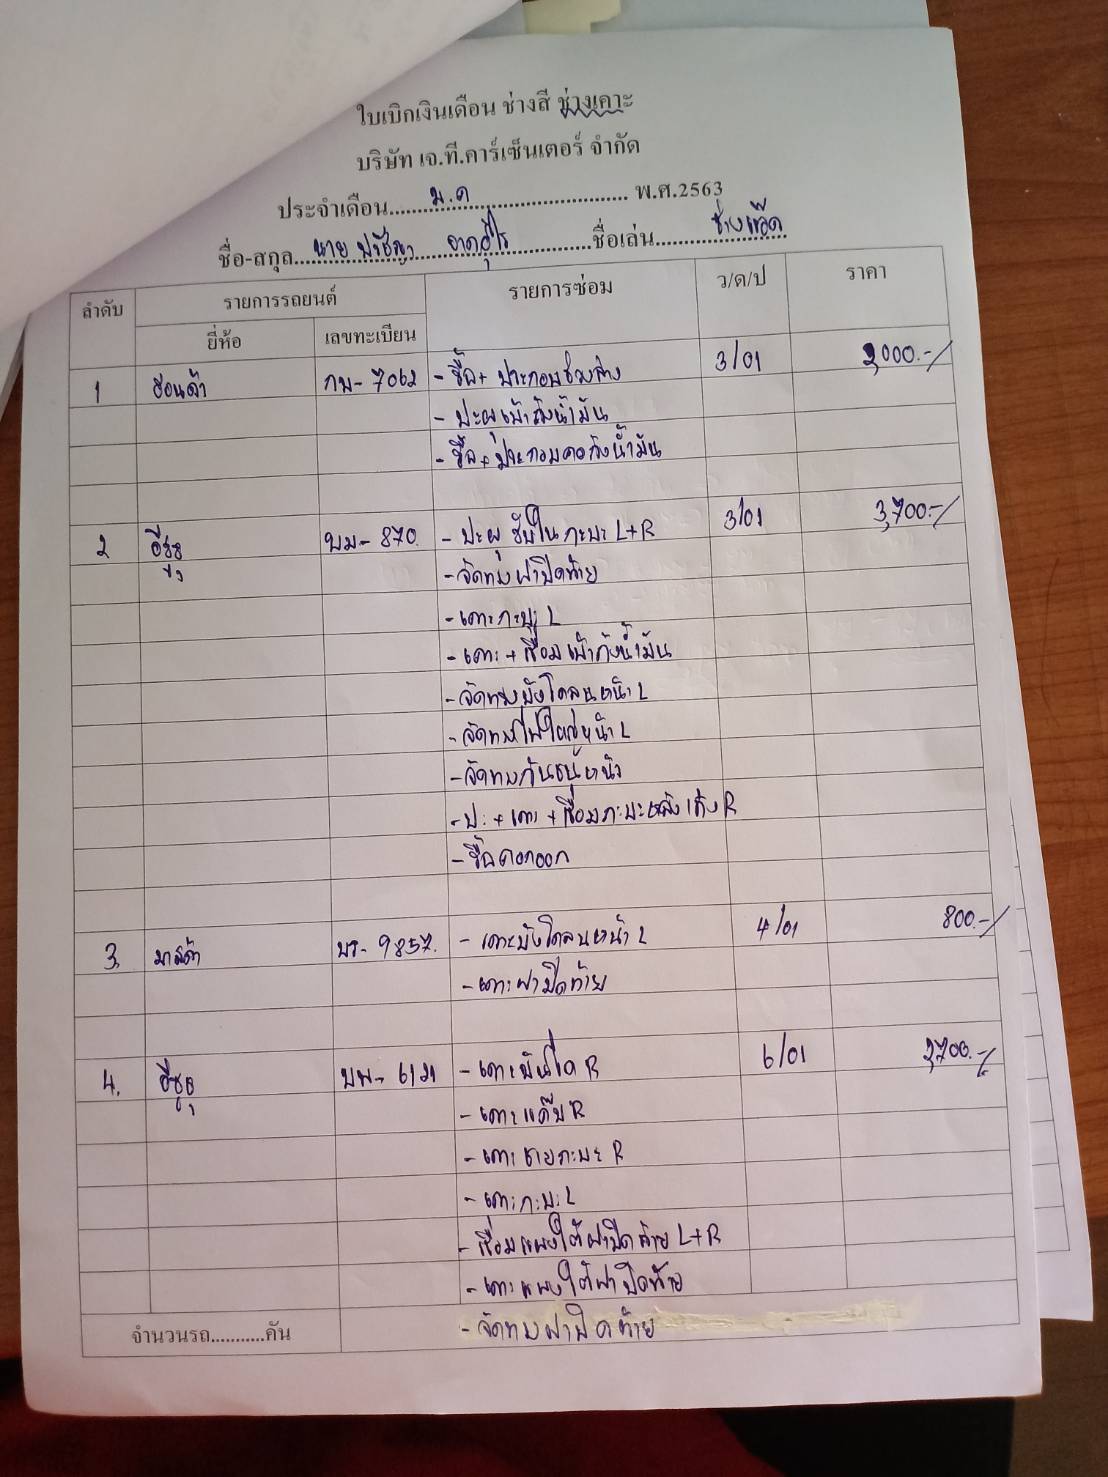 ใบเบิกเงินเดือน ช่างสี ช่างเคาะ
บริษัท เจ.ที.คาร์เซ็นเตอร์ จำกัด
ประจำเดือน.....ม.ค.......... พ.ศ.2563
ชื่อ-สกุล...นาย ปรัชญา ..........ชื่อเล่น..........
ลำดับ รายการรถยนต์ รายการซ่อม ว/ด/ป ราคา
ยี่ห้อ เลขทะเบียน
1 ฮอนด้า กบ-7062 - ซื้อ + ประกอบช่วงล่าง 3/01 2,000.-/
- ปะผุเบ้าถังน้ำมัน
- ซื้อ + ประกอบคอถังน้ำมัน
2 อีซูซุ บม-870 - ปะผุ ซับใน กะบะ L+R 3/01 3,700.-/
- จัดทรงฝาปิดท้าย
- เคาะกะบะ L
- เคาะ + เชื่อมเบ้าถังน้ำมัน
- จัดทรงบังโคลนหน้า L
- จัดทรงไฟใหญ่หน้า L
- จัดทรงกันชนหน้า
- ปะ + เคาะ + เชื่อมกะบะหลังเก๋ง R
- ซื้อดอกออก
3. มาสด้า บร-9857. - เคาะบังโคลนหน้า L 4/01 800.-/
- เคาะฝาปิดท้าย
4. อีซูซุ บพ- - เคาะบันได R 6/01 2,700.-/
- เคาะแค๊บ R
- เคาะชายกะบะ R
- เคาะกะบะ L
- เชื่อมแผงใต้ฝาปิดท้าย L+R
- เคาะแผงใต้ฝาปิดท้าย
จำนวนรถ...........คัน - จัดทรงฝาปิดท้าย